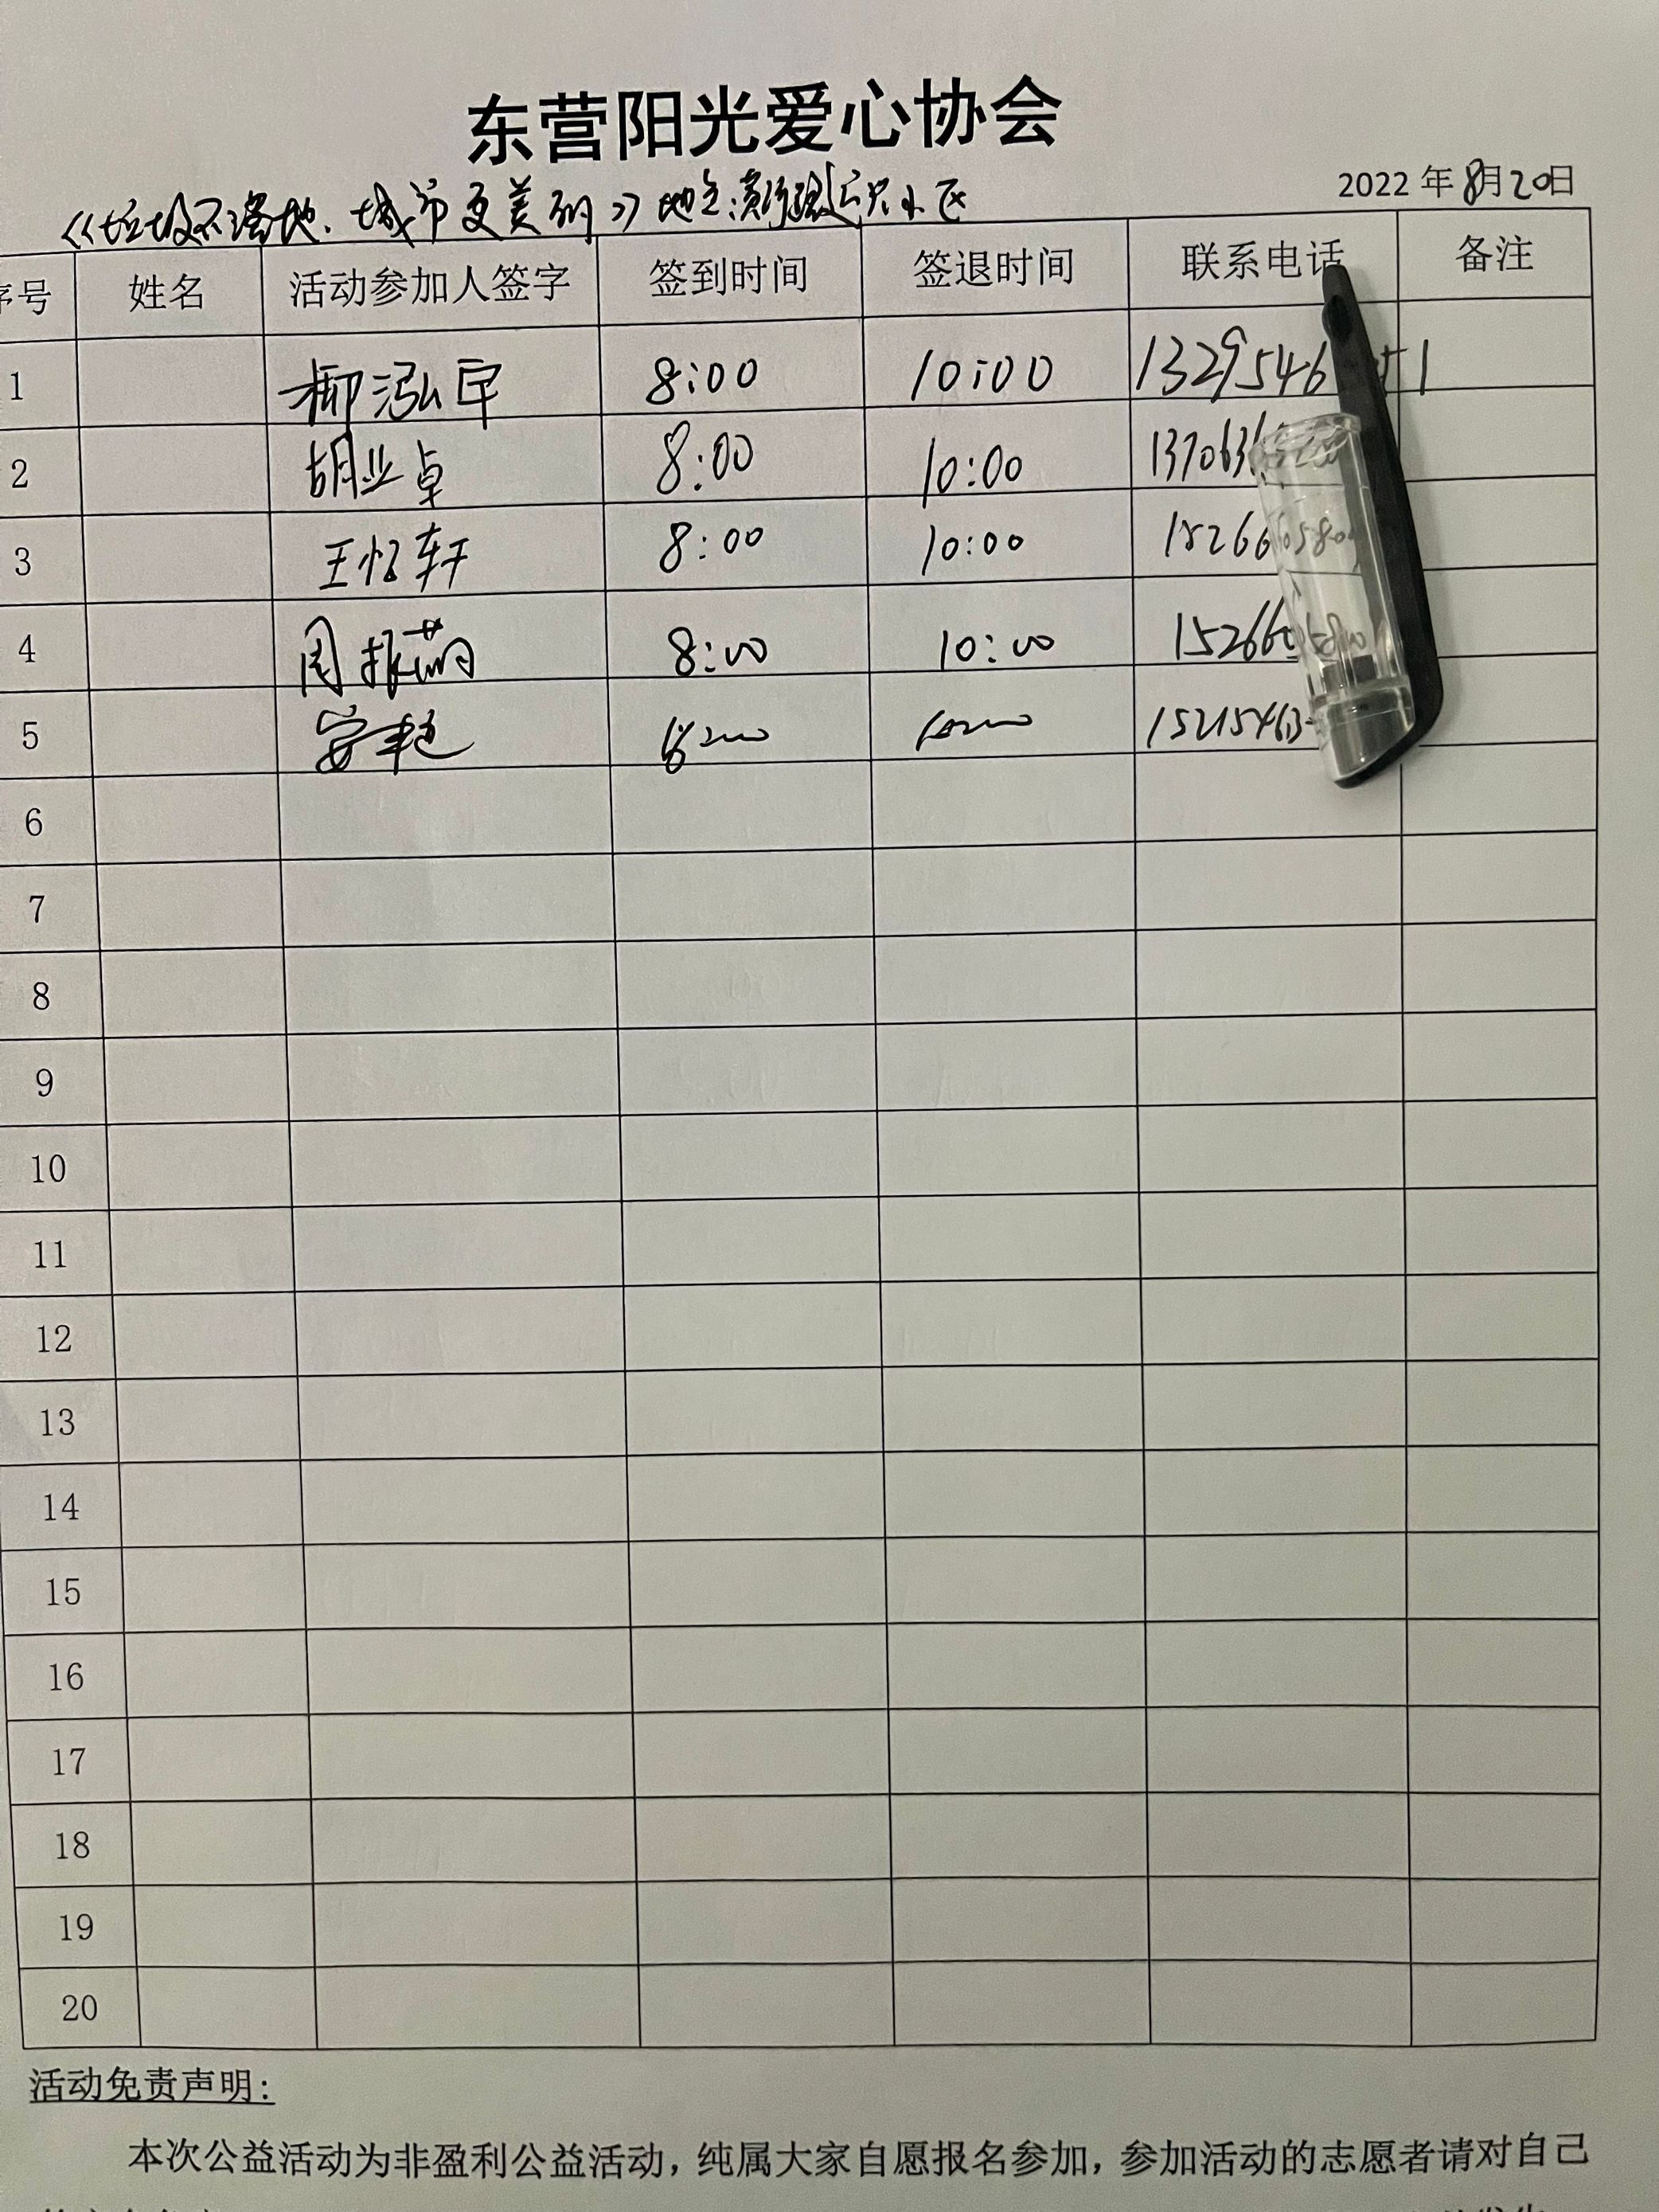 东营阳光爱心协会
2022 年 8月20日
《垃圾不落地.城市更美丽》地点:黄河路
序号 姓名 活动参加人签字 签到时间 签退时间 联系电话 备注
1 柳泓宇 8:00 10:00 1329546 51
2 胡业卓 8:00 10:00 137063
3 王忆轩 8:00 10:00 15266605800
4 周振 8:00 10:00 15266605800
5 安艳 8:00 10:00 15215463
6
7
8
9
10
11
12
13
14
15
16
17
18
19
20
活动免责声明:
本次公益活动为非盈利公益活动,纯属大家自愿报名参加,参加活动的志愿者请对自己